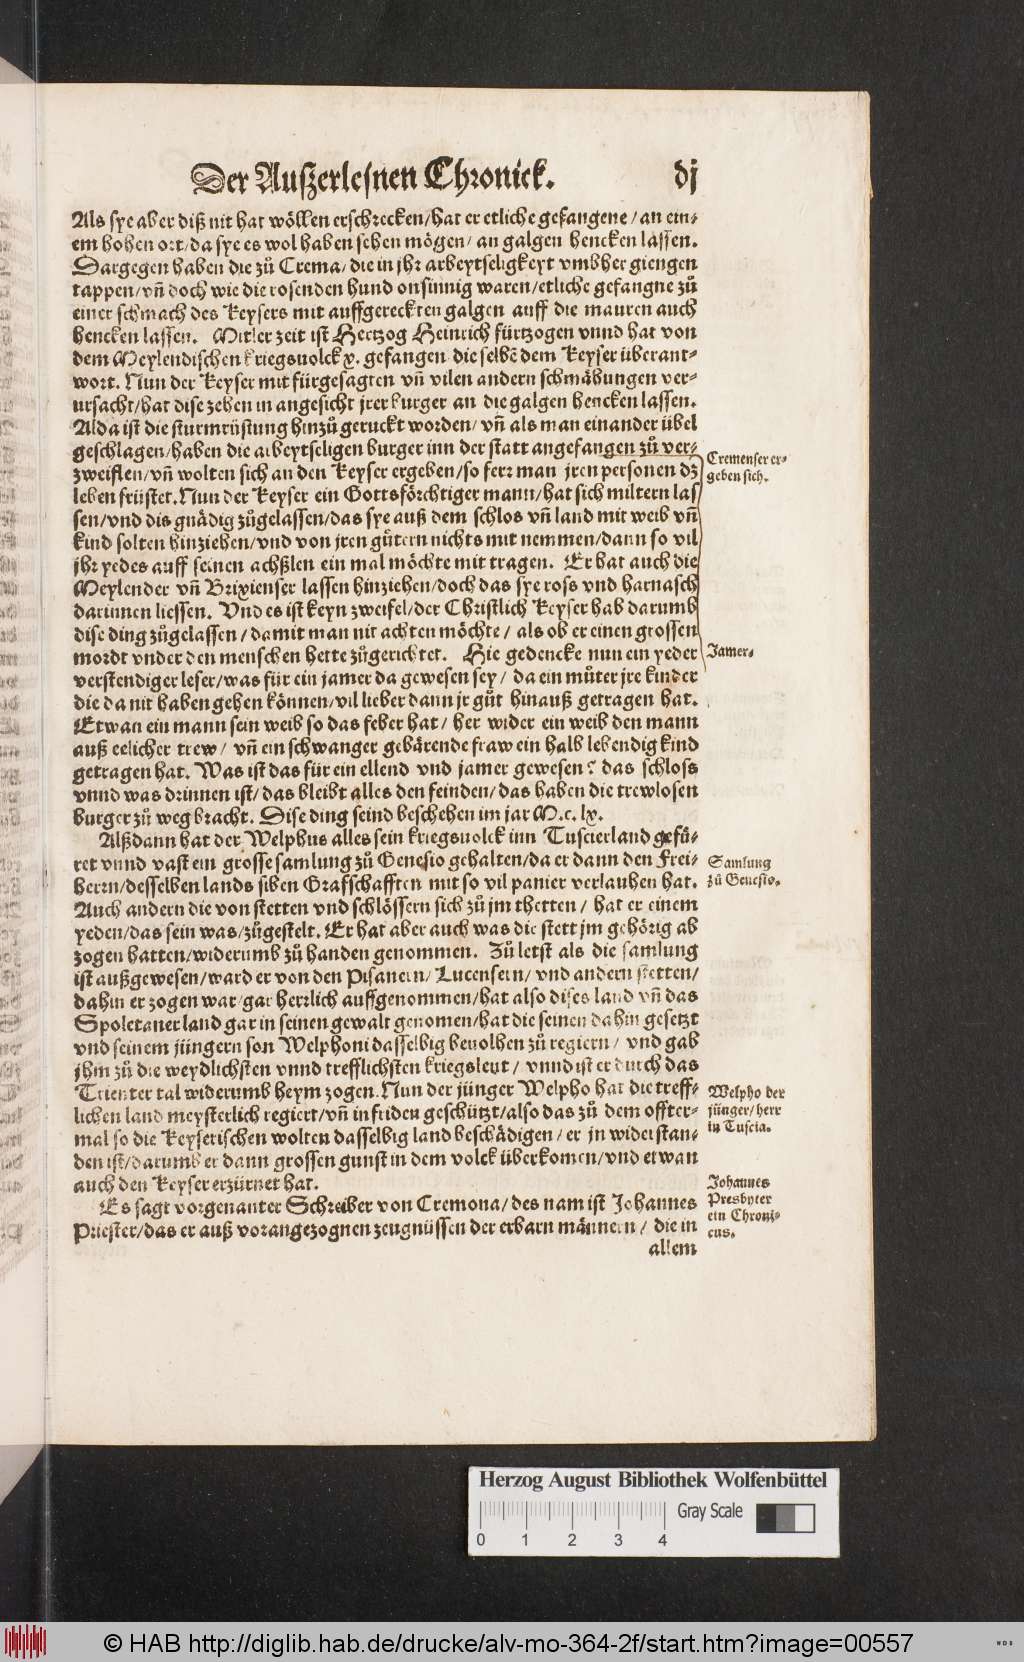 Der Außerlesnen Chronick. dj
Als sye aber diß nit hat wöllen erschrecken/hat er etliche gefangene/an ein⸗
em hohen ort/da sye es wol haben sehen mögen/an galgen hencken lassen.
Dargegen haben die zů Crema/die in jhr arbeytseligkeyt vmbher giengen
tappen/vñ doch wie die tosenden hund onsinnig waren/etliche gefangne zů
einer schmach des Keysers mit auffgereckten galgen auff die mauren auch
hencken lassen. Mitler zeit ist Hertzog Heinrich fürtzogen vnnd hat von
dem Meylendischen kriegsuolck x. gefangen die selbē dem Keyser überant⸗
wort. Nun der Keyser mit fürgesagten vñ vilen andern schmähungen ver⸗
ursacht/hat dise zehen in angesicht jrer burger an die galgen hencken lassen.
Alda ist die sturmrüstung hinzů geruckt worden/vñ als man einander übel
geschlagen/haben die arbeytseligen burger inn der statt angefangen zů ver⸗
zweiflen/vñ wolten sich an den Keyser ergeben/so ferr man jren personen dz
leben früstet. Nun der Keyser ein Gottsförchtiger mann/hat sich miltern las
sen/vnd dis gnädig zůgelassen/das sye auß dem schlos vñ land mit weib vñ
kind solten hinziehen/vnd von jren gůtern nichts mit nemmen/dann so vil
jhr yedes auff seinen achßlen ein mal möchte mit tragen. Er hat auch die
Meylender vñ Brixienser lassen hinziehen/doch das sye ross vnd harnasch
darinnen liessen. Vnd es ist keyn zweifel/der Christlich Keyser hab darumb
dise ding zůgelassen/damit man nit achten möchte/als ob er einen grossen
mordt vnder den menschen hette zůgerichtet. Hie gedencke nun ein yeder
verstendiger leser/was für ein jamer da gewesen sey/da ein můter jre kinder
die da nit haben gehen können/vil lieber dann jr gůt hinauß getragen hat.
Etwan ein mann sein weib so das feber hat/her wider ein weib den mann
auß eelicher trew/vñ ein schwanger gebärende fraw ein halb lebendig kind
getragen hat. Was ist das für ein ellend vnd jamer gewesen? das schloss
vnnd was drinnen ist/das bleibt alles den feinden/das haben die trewlosen
burger zů weg bracht. Dise ding seind beschehen im jar M.c.lx.
Alßdann hat der Welphus alles sein kriegsuolck inn Tuscierland gefü⸗
ret vnnd vast ein grosse samlung zů Genesio gehalten/da er dann den Frei⸗
herrn/desselben lands siben Grafschafften mit so vil panier verlauhen hat.
Auch andern die von stetten vnd schlössern sich zů jm thetten/hat er einem
yeden/das sein was/zůgestelt. Er hat aber auch was die stett jm gehörig ab
zogen hatten/widerumb zů handen genommen. Zů letst als die samlung
ist außgewesen/ward er von den Pisanern/Lucensern/vnd andern stetten/
dahin er zogen war/gar herrlich auffgenommen/hat also dises land vñ das
Spoletanerland gar in seinen gewalt genomen/hat die seinen dahin gesetzt
vnd seinem jüngern son Welphoni dasselbig beuolhen zů regiern/vnd gab
jhm zů die weydlichsten vnnd trefflichsten kriegsleut/vnnd ist er durch das
Trienter tal widerumb heym zogen. Nun der jünger Welpho hat die treff⸗
lichen land meysterlich regiert/vñ in friden geschützt/also das zů dem offter⸗
mal so die Keyserischen wolten dasselbig land beschädigen/er jn widerstan⸗
den ist/darumb er dann grossen gunst in dem volck überkomen/vnd etwan
auch den Keyser erzürnet hat.
Es sagt vorgenanter Schreiber von Cremona/des nam ist Johannes
Priester/das er auß vorangezognen zeugnüssen der erbarn männern/die in
allem
Cremenser er⸗
geben sich.
Jamer.
Samlung
zů Genesio.
Welpho der
jünger/herr
in Tuscia.
Johannes
Presbyter
ein Chroni⸗
cus.
Herzog August Bibliothek Wolfenbüttel
Gray Scale
0 1 2 3 4
© HAB http://diglib.hab.de/drucke/alv-mo-364-2f/start.htm?image=00557